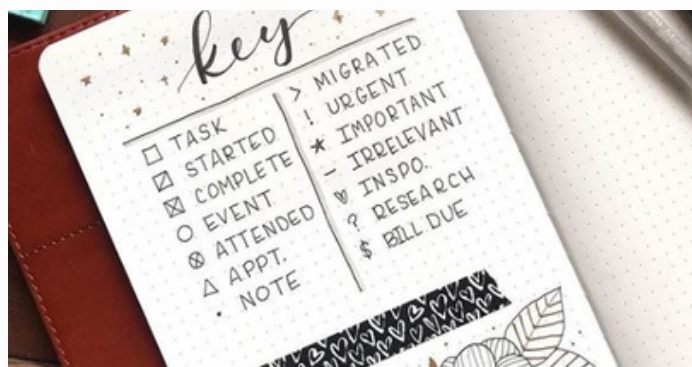 key
□ TASK
⧄ STARTED
☒ COMPLETE
○ EVENT
⊗ ATTENDED
△ APPT.
• NOTE
> MIGRATED
! URGENT
★ IMPORTANT
– IRRELEVANT
♡ INSPO.
? RESEARCH
$ BILL DUE